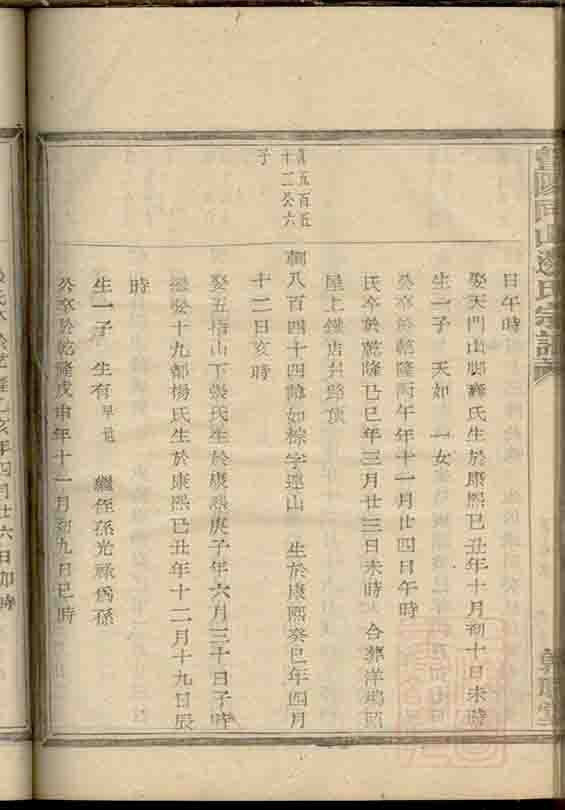 日午時
娶天門山腳壽氏生於康熙己丑年十月初十日未時
生一子 天如 一女
公卒於乾隆丙午年十一月廿四日午時
氏卒於乾隆己巳年三月廿三日未時 合葬洋塢
屋上鐵店
真五百五
十二公六
子
朝八百四十四 如棕字連山 生於康熙癸巳年四月
十二日亥時
娶五指山下張氏生於康熙庚子年六月三十日子時
繼娶十九都楊氏生於康熙己丑年十二月十九日辰
時
生一子 生有 早 繼侄孫光祿為孫
公卒於乾隆戊申年十一月初九日巳時
年四月廿六日卯時
氏宗譜